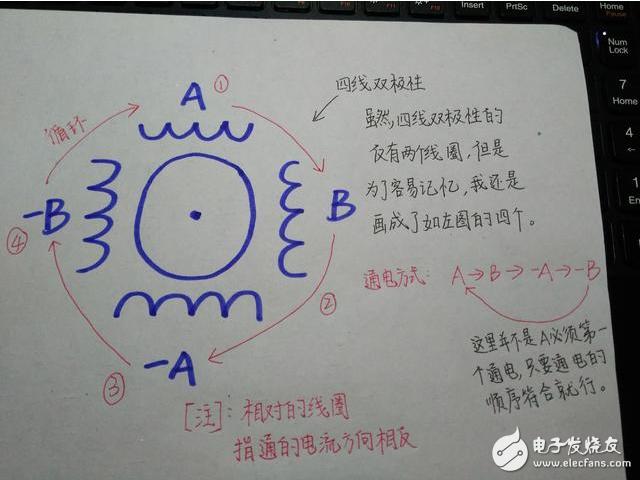 Insert
PrtSc
Delete
Home
Pause
Num
Lock
7
Home
4
←
1
En
0
In
A ①
循环
四线双极性
虽然,四线双极性的
仅有两个线圈,但是
为了容易记忆,我还是
画成了如左图的四个。
-B
④
B
②
-A
③
通电方式: A→B→-A→-B
这里并不是A必须第一
个通电,只要通电的
顺序符合就行。
[注]: 相对的线圈
指通的电流方向相反
电子发烧友
www.elecfans.com